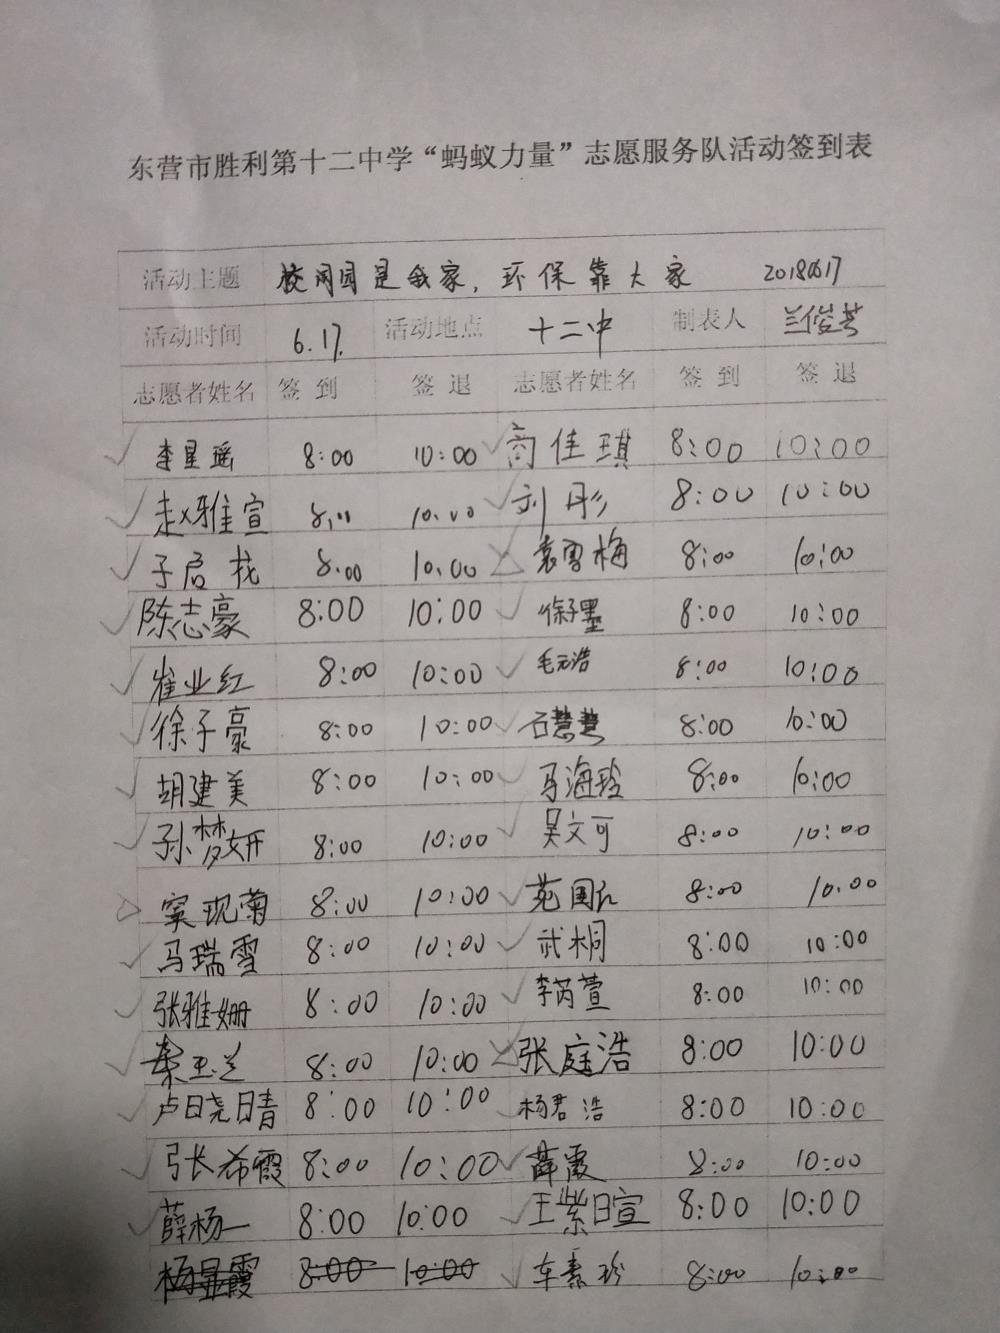 东营市胜利第十二中学“蚂蚁力量”志愿服务队活动签到表
活动主题 校园是我家，环保靠大家 20180617
活动时间 6.17. 活动地点 十二中 制表人 兰俊芳
志愿者姓名 签到 签退 志愿者姓名 签到 签退
李星瑶 8:00 10:00 商佳琪 8:00 10:00
赵雅宣 8:00 10:00 刘彤 8:00 10:00
8:00 10:00 袁雪梅 8:00 10:00
陈志豪 8:00 10:00 徐子墨 8:00 10:00
崔业红 8:00 10:00 毛元浩 8:00 10:00
徐子豪 8:00 10:00 石慧慧 8:00 10:00
胡建美 8:00 10:00 马海玲 8:00 10:00
孙梦妍 8:00 10:00 吴文可 8:00 10:00
窦现菊 8:00 10:00 8:00 10:00
马瑞雪 8:00 10:00 武桐 8:00 10:00
张雅姗 8:00 10:00 李芮萱 8:00 10:00
秦玉兰 8:00 10:00 张庭浩 8:00 10:00
卢晓晴 8:00 10:00 杨君浩 8:00 10:00
张希霞 8:00 10:00 薛霞 8:00 10:00
薛杨一 8:00 10:00 王紫暄 8:00 10:00
杨显霞 8:00 10:00 车素珍 8:00 10:00